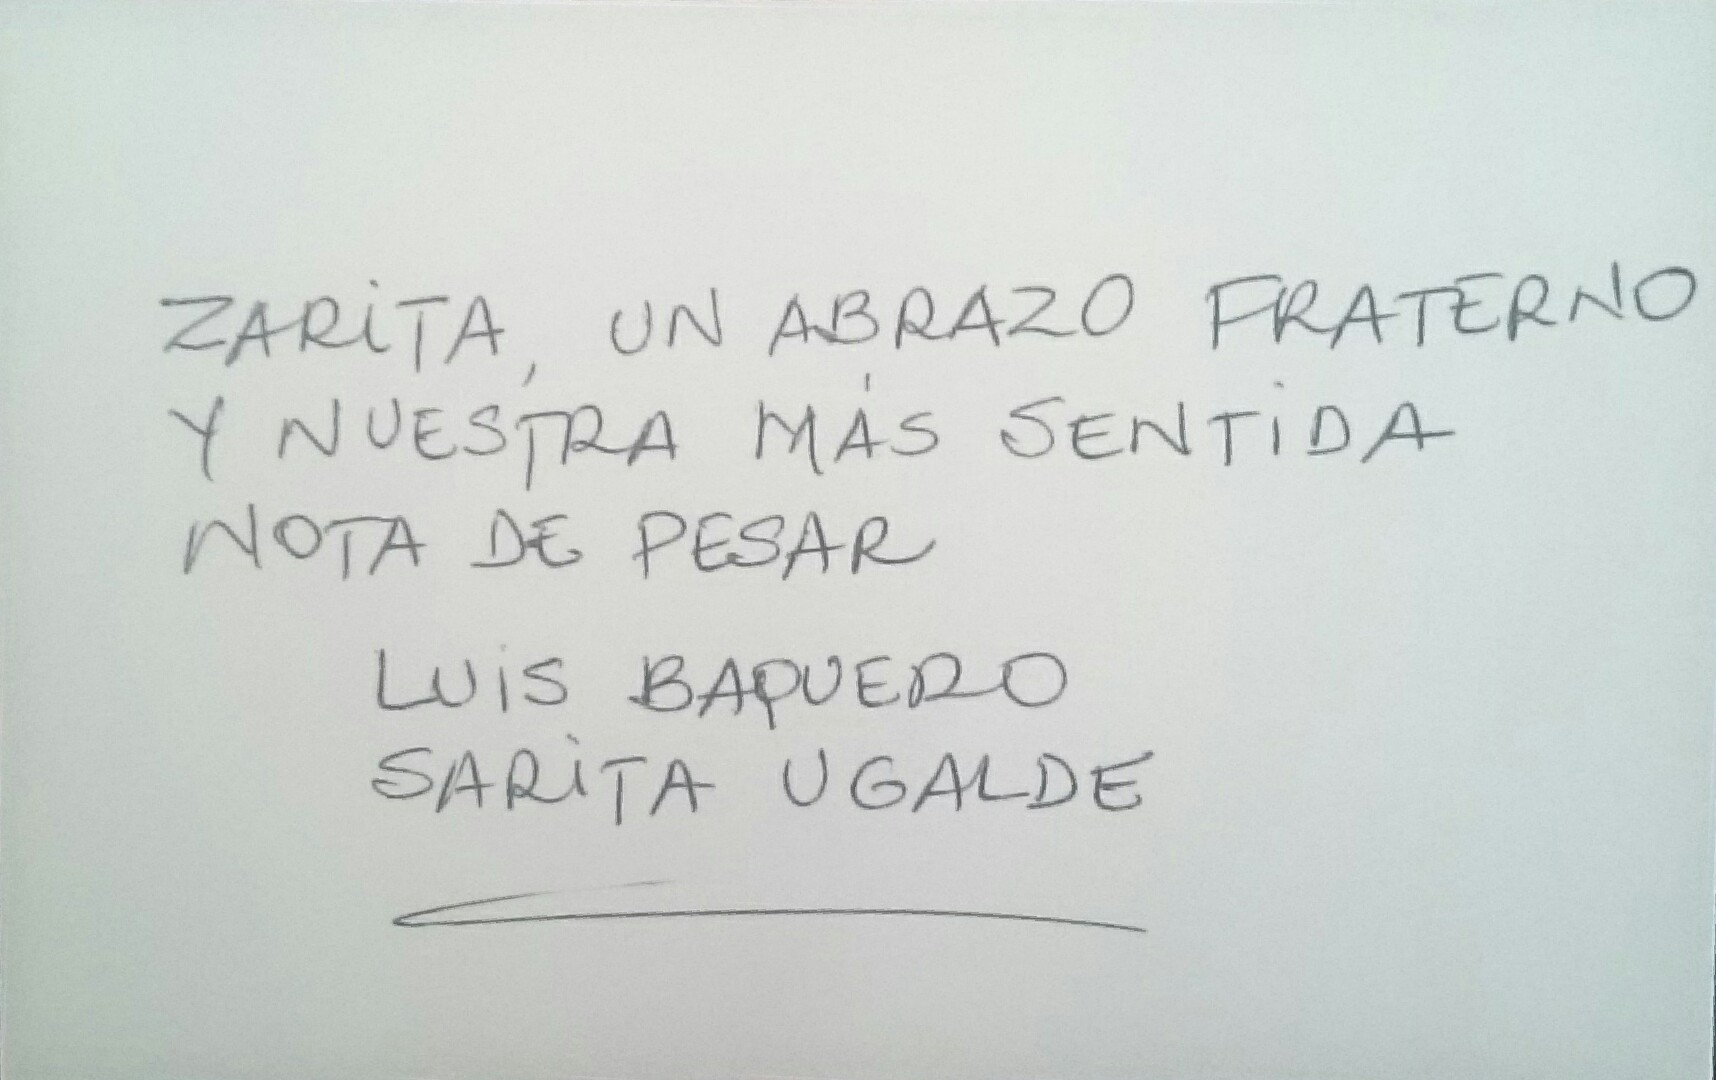 ZARITA, UN ABRAZO FRATERNO
Y NUESTRA MÁS SENTIDA
NOTA DE PESAR
LUIS BAQUERO
SARITA UGALDE